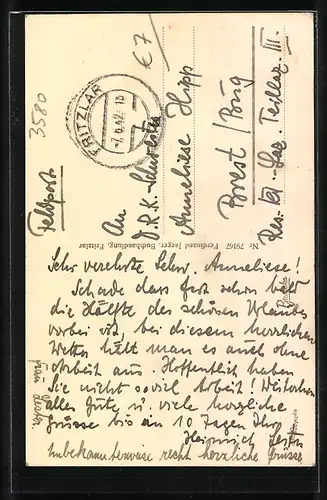 3580
€7
FRITZLAR
Feldpost
An
D.R.K. Schwester
Anneliese Hipp
Brest / Bug
Res. Laz. Teillaz. III.
Nr 79167 Ferdinand Jaeger, Buchhandlung, Fritzlar
Sehr verehrte Schw. Anneliese!
Schade dass fast schon bald
die Hälfte des schönen Urlaubes
vorbei ist, bei diesem herrlichen
Wetter hält man es auch ohne
Arbeit aus. Hoffentlich haben
Sie nicht soviel Arbeit! Weiterhin
alles Gute u. viele herzliche
Grüsse bis an 10 Tagen Ihr
Heinrich
Unbekannterweise recht herzliche Grüsse
Frau